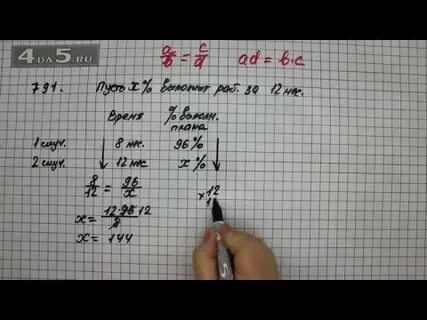 4DA5.RU
a/b = c/d ad = b·c
791. Пусть x% выполнят раб. за 12 мес.
Время % выполн. плана
1 случ. 8 мес. 96%
2 случ. 12 мес x%
8/12 = 96/x
x = 12·96 12/8
x = 144
× 12
1